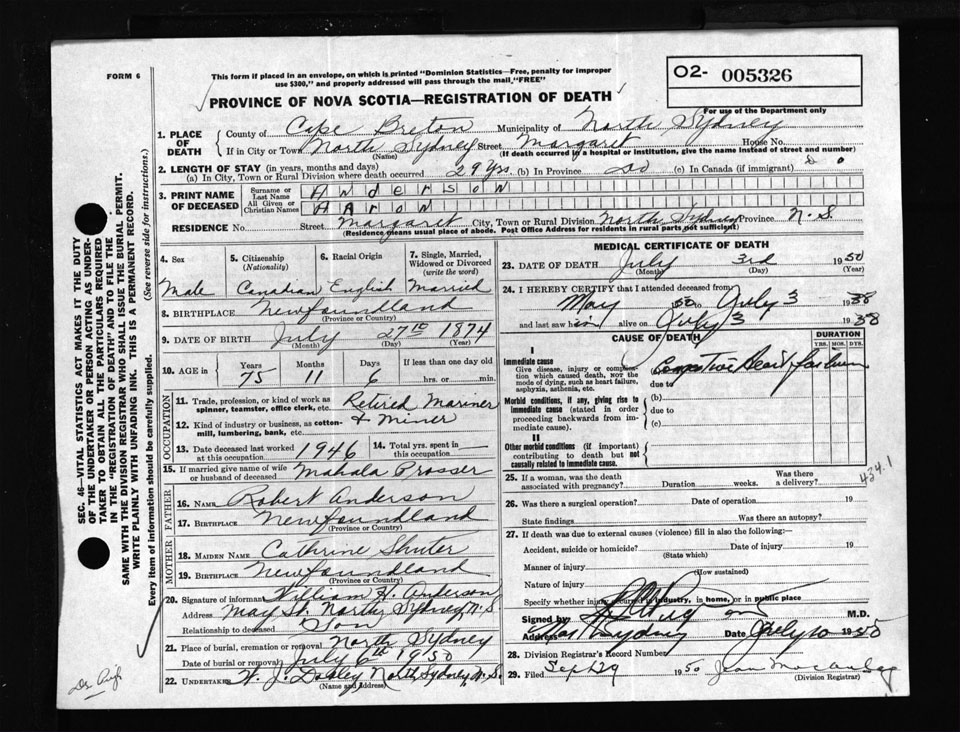 FORM 6
This form if placed in an envelope, on which is printed "Dominion Statistics—Free, penalty for improper
use $300," and properly addressed will pass through the mail, "FREE"
O2- 005326
PROVINCE OF NOVA SCOTIA—REGISTRATION OF DEATH
For use of the Department only
1. PLACE OF DEATH
County of Cape Breton Municipality of North Sydney
If in City or Town North Sydney Street Margaret House No.
(Name) (If death occurred in a hospital or institution, give the name instead of street and number)
2. LENGTH OF STAY (in years, months and days)
(a) In City, Town or Rural Division where death occurred 29 Yrs. (b) In Province do (c) In Canada (if immigrant) do
3. PRINT NAME OF DECEASED
Surname or Last Name Anderson
All Given or Christian Names Aaron
RESIDENCE No. Street Margaret City, Town or Rural Division North Sydney Province N.S.
(Residence means usual place of abode. Post Office Address for residents in rural parts not sufficient)
4. Sex
Male
5. Citizenship (Nationality)
Canadian
6. Racial Origin
English
7. Single, Married, Widowed or Divorced (write the word)
Married
8. BIRTHPLACE Newfoundland
(Province or Country)
9. DATE OF BIRTH July 27th 1874
(Month) (Day) (Year)
10. AGE in Years Months Days If less than one day old
75 11 6 hrs. or min.
OCCUPATION
11. Trade, profession, or kind of work as spinner, teamster, office clerk, etc. Retired Mariner
12. Kind of industry or business, as cotton-mill, lumbering, bank, etc. & Miner
13. Date deceased last worked at this occupation 1946
14. Total yrs. spent in this occupation
15. If married give name of wife or husband of deceased Mahala Prosser
FATHER
16. NAME Robert Anderson
17. BIRTHPLACE Newfoundland
(Province or Country)
MOTHER
18. MAIDEN NAME Cathrine Shuter
19. BIRTHPLACE Newfoundland
(Province or Country)
20. Signature of informant William H. Anderson
Address May St. North Sydney, N.S.
Relationship to deceased Son
21. Place of burial, cremation or removal North Sydney
Date of burial or removal July 6th 1950
22. UNDERTAKER W. J. Dooley North Sydney, N.S.
(Name and Address)
MEDICAL CERTIFICATE OF DEATH
23. DATE OF DEATH July 3rd 1950
(Month) (Day) (Year)
24. I HEREBY CERTIFY that I attended deceased from
May 50 to July 3 1938
and last saw him alive on July 3 1938
CAUSE OF DEATH
DURATION
YRS. MOS. DYS.
I
Immediate cause
Give disease, injury or complication which caused death, not the mode of dying, such as heart failure, asphyxia, asthenia, etc.
(a) Congestive Heart failure
due to
Morbid conditions, if any, giving rise to immediate cause (stated in order proceeding backwards from immediate cause).
(b)
due to
(c)
II
Other morbid conditions (if important) contributing to death but not causally related to immediate cause.
434.1
25. If a woman, was the death associated with pregnancy? Duration weeks. Was there a delivery?
26. Was there a surgical operation? Date of operation 19
State findings Was there an autopsy?
27. If death was due to external causes (violence) fill in also the following:—
Accident, suicide or homicide? Date of injury 19
(State which)
Manner of injury
(How sustained)
Nature of injury
Specify whether injury occurred in industry, in home, or in public place
Signed by M.D.
Address Sydney Date July 10 1950
28. Division Registrar's Record Number
29. Filed Sept 29 1950 Jean
(Division Registrar)
SEC. 46—VITAL STATISTICS ACT MAKES IT THE DUTY
OF THE UNDERTAKER OR PERSON ACTING AS UNDER-
TAKER TO OBTAIN ALL THE PARTICULARS REQUIRED
IN THE "REGISTRATION OF DEATH" AND TO FILE THE
SAME WITH THE DIVISION REGISTRAR WHO SHALL ISSUE THE BURIAL PERMIT.
WRITE PLAINLY WITH UNFADING INK. THIS IS A PERMANENT RECORD.
Every item of information should be carefully supplied. (See reverse side for instructions.)